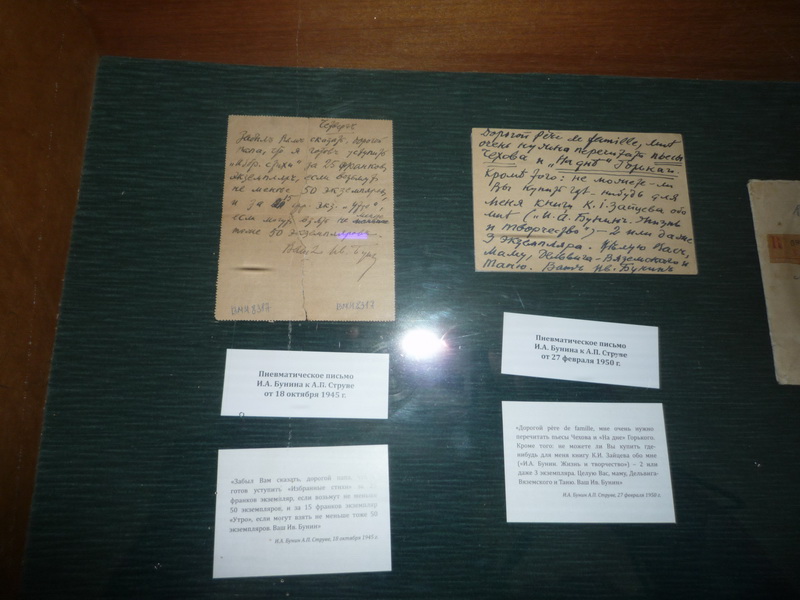 Забылъ Вамъ сказать, дорогой
папа, что я готовъ уступить
за 25 франковъ
экземпляръ, если возьмутъ
не менѣе 50 экземпляр.,
и за 15 фр. экз. „Утро“,
если могутъ взять не
тоже 50 экземпляровъ.
Вашъ Ив. Бунинъ
ВМЯ 8317
ВМЯ 8317
Дорогой père de famille, мнѣ
очень нужно перечитать пьесы
Чехова и „На днѣ“ Горькаго.
Кромѣ того: не можете-ли
Вы купить гдѣ-нибудь для
меня книгу К.І. Зайцева обо
мнѣ („И.А. Бунинъ. Жизнь
и творчество“) – 2 или даже
3 экземпляра. Цѣлую Васъ,
маму, Дельвига-Вяземскаго и
Таню. Вашъ Ив. Бунинъ
Пневматическое письмо
И.А. Бунина к А.П. Струве
от 18 октября 1945 г.
Пневматическое письмо
И.А. Бунина к А.П. Струве
от 27 февраля 1950 г.
«Забыл Вам сказать, дорогой
готов уступить «Избранные стихи» за
франков экземпляр, если возьмут не меньше
50 экземпляров, и за 15 франков экземпляр
«Утро», если могут взять не меньше тоже 50
экземпляров. Ваш Ив. Бунин»
И.А. Бунин А.П. Струве, 18 октября 1945 г.
«Дорогой père de famille, мне очень нужно
перечитать пьесы Чехова и «На дне» Горького.
Кроме того: не можете ли Вы купить где-
нибудь для меня книгу К.И. Зайцева обо мне
(«И.А. Бунин. Жизнь и творчество») – 2 или
даже 3 экземпляра. Целую Вас, маму, Дельвига-
Вяземского и Таню. Ваш Ив. Бунин»
И.А. Бунин А.П. Струве, 27 февраля 1950 г.